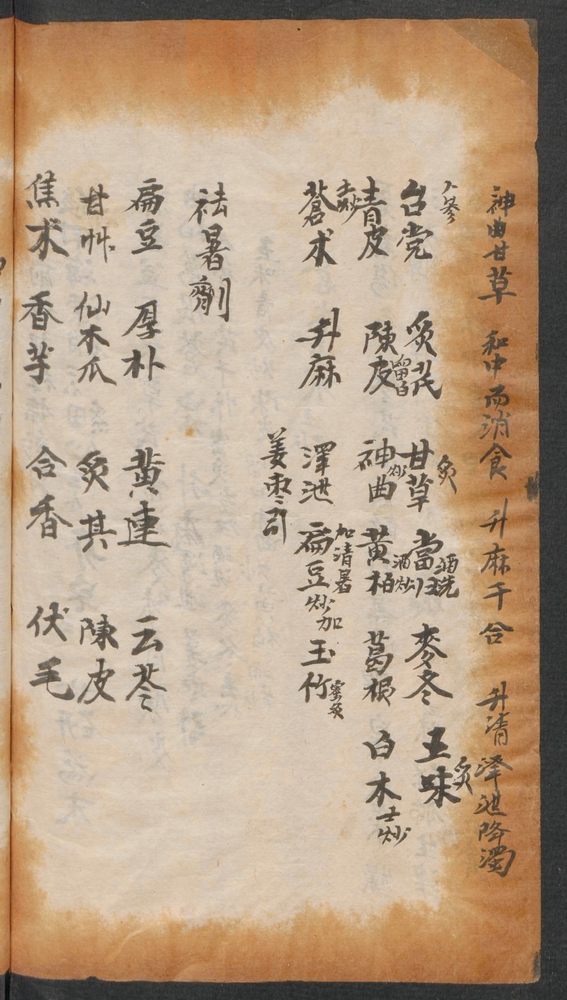 神曲甘草 和中而消食 升麻干合 升清 泽泄降濁
人参
台党 炙芪 甘草炙 當归酒洗 麦冬 五味炙
青皮土炒 陳皮留白 神曲炒 黄柏酒炒 葛根 白术土炒
蒼术 升麻 澤泄 扁豆炒 加玉竹蜜炙
加清暑
姜枣引
祛暑劑
扁豆 厚朴 黄連 云苓
甘艸 仙木瓜 炙其 陳皮
焦术 香芋 合香 伏毛